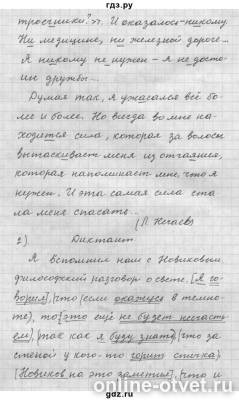 gdz.ru
тросчники?". И оказалось-никому.
Ни медицине, ни железной дороге...
Я никому не нужен - я не досто-
ин дружбы...
Думая так, я ужасался всё бо-
лее и более. Но всегда во мне на-
ходится сила, которая за волосы
вытаскивает меня из отчаяния,
которая напоминает мне, что я
нужен. И эта самая сила ста
ла меня спасать...
(П. Нагаев)
2) Диктант
Я вспомнил наш с Новиковым
философский разговор о свете. [Я го-
ворил], (что (если окажусь в темно-
те), то [это ещё не будет несчасть-
ем], (так как я буду знать), (что за
стеной у кого-то горит спичка)
[Новиков на это заметил], (что и
online-otvet.ru
gdz.ru